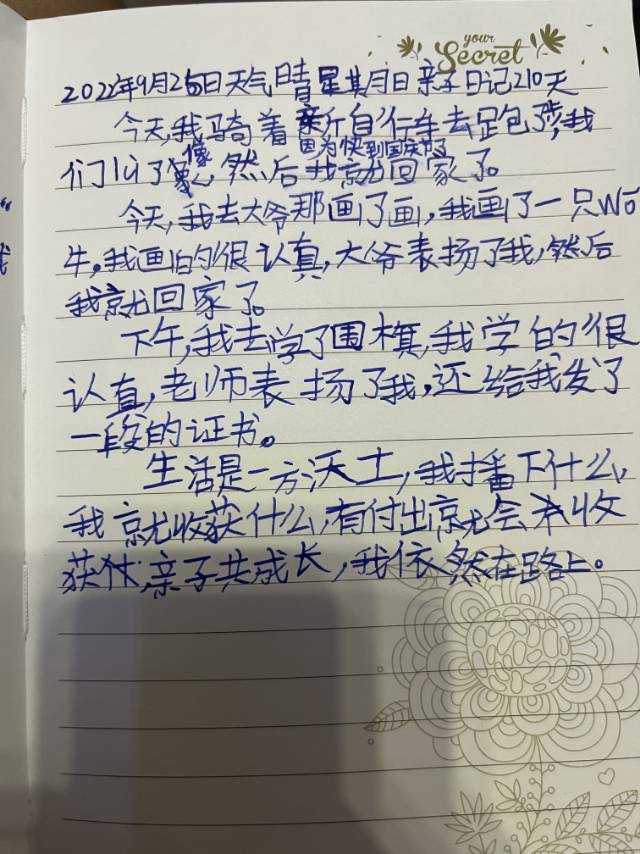 your
Secret
2022年9月25日天气晴星其月日亲子日记210天
今天,我骑着新自行车去跑步,我
因为快到国庆节了
像
们以了像,然后我就回家了。
今天,我去大爷那画了画,我画了一只Wō
牛,我画的很认真,大爷表扬了我,然后
我就回家了。
下午,我去学了围棋,我学的很
认真,老师表扬了我,还给我发了
一段的证书。
生活是一方沃土,我播下什么,
我就收获什么,有付出就会有收
获,亲子共成长,我依然在路上。